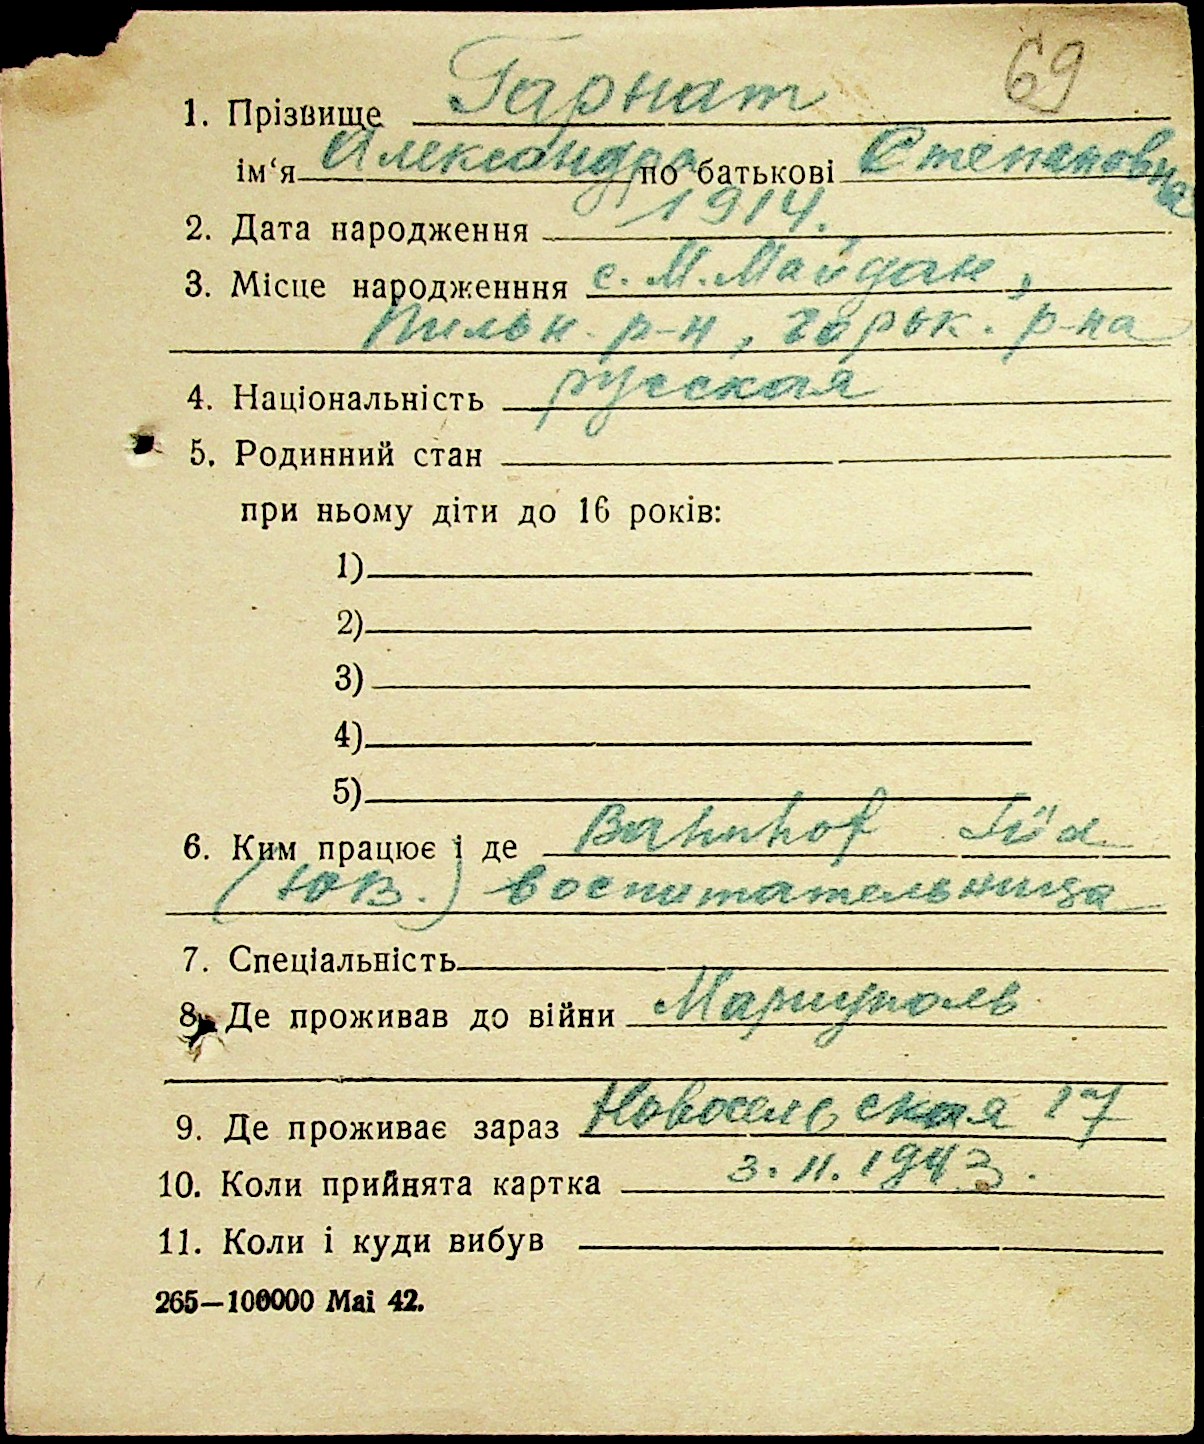 69
1. Прізвище Гарнат
ім‘я Александра по батькові Степановна
2. Дата народження 1914.
3. Місце народженння с. М. Майдан,
Пильн. р-н, горьк. р-на
4. Національність русская
5. Родинний стан
при ньому діти до 16 років:
1)
2)
3)
4)
5)
6. Ким працює і де Bahnhof Süd
(ЮВ.) воспитательница
7. Спеціальність
8. Де проживав до війни Мариуполь
9. Де проживає зараз Новосельская 17
10. Коли прийнята картка 3. II. 1943.
11. Коли і куди вибув
265—100000 Mai 42.